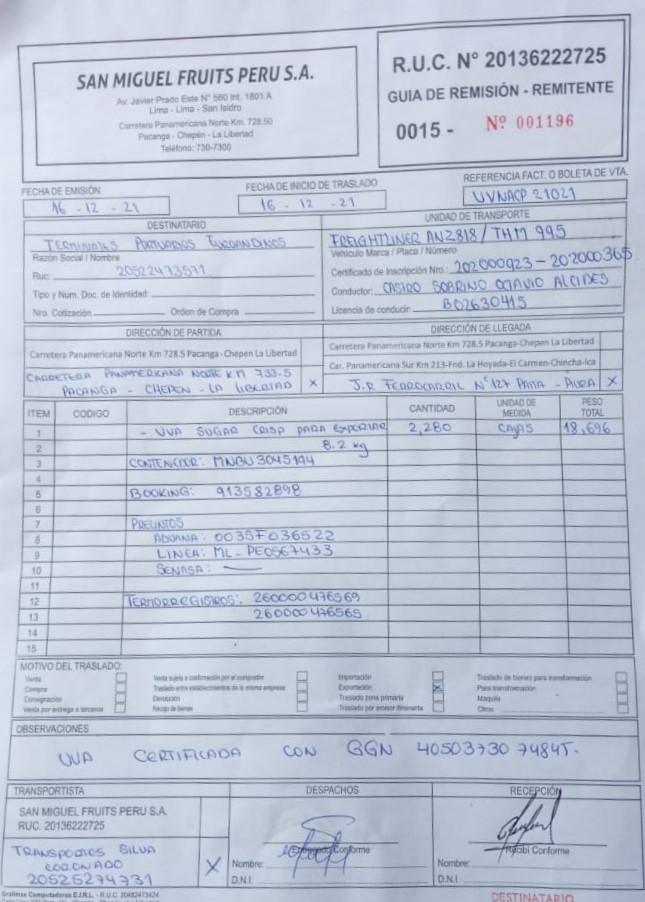 SAN MIGUEL FRUITS PERU S.A.
Av. Javier Prado Este N° 560 Int. 1801 A
Lima - Lima - San Isidro
Carretera Panamericana Norte Km. 728.50
Pacanga - Chepén - La Libertad
Teléfono: 730-7300
R.U.C. N° 20136222725
GUIA DE REMISIÓN - REMITENTE
0015 - Nº 001196
FECHA DE EMISIÓN
16 - 12 - 21
FECHA DE INICIO DE TRASLADO
16 - 12 - 21
REFERENCIA FACT. O BOLETA DE VTA.
UVNACP 21021
DESTINATARIO
TERMINALES PORTUARIOS EUROANDINOS
Razón Social / Nombre
Ruc: 20522473571
Tipo y Num. Doc. de Identidad:
Nro. Cotización Orden de Compra
UNIDAD DE TRANSPORTE
FREIGHTLINER ANZ818 / THM 995
Vehículo Marca / Placa / Número
Certificado de Inscripción Nro.: 202000923 - 202000365
Conductor: CASTRO SOBRINO OCTAVIO ALCIDES
Licencia de conducir: B02630415
DIRECCIÓN DE PARTIDA
Carretera Panamericana Norte Km 728.5 Pacanga - Chepen La Libertad
CARRETERA PANAMERICANA NORTE KM 733.5
PACANGA - CHEPEN - LA LIBERTAD X
DIRECCIÓN DE LLEGADA
Carretera Panamericana Norte Km 728.5 Pacanga-Chepen La Libertad
Car. Panamericana Sur Km 213-Fnd. La Hoyada-El Carmen-Chincha-Ica
J.R FERROCARRIL N° 127 PAITA - PIURA X
ITEM CODIGO DESCRIPCIÓN CANTIDAD UNIDAD DE MEDIDA PESO TOTAL
1 - UVA SUGAR CRISP PARA EXPORTAR 2,280 CAJAS 18,696
2 8.2 kg
3 CONTENEDOR: MNBU3045194
4
5 BOOKING: 913582898
6
7 PRECINTOS
8 ADUANA: 0035F036522
9 LINEA: ML-PE0567433
10 SENASA: —
11
12 TERMORREGISTROS: 260000476569
13 260000476565
14
15
MOTIVO DEL TRASLADO:
Venta Venta sujeta a confirmación por el comprador Importación Traslado de bienes para transformación
Compra Traslado entre establecimientos de la misma empresa Exportación X Para transformación
Consignación Devolución Traslado zona primaria Maquila
Venta por entrega a terceros Recojo de bienes Traslado por emisor itinerante Otros
OBSERVACIONES
UVA CERTIFICADA CON GGN 4050373074845.
TRANSPORTISTA
SAN MIGUEL FRUITS PERU S.A.
RUC. 20136222725
TRANSPORTES SILVA
CORONADO
20525274731 X
DESPACHOS
Entregado Conforme
Nombre:
D.N.I.
RECEPCIÓN
Recibi Conforme
Nombre:
D.N.I.
Grafimas Computadoras E.I.R.L. - R.U.C. 20482473424
DESTINATARIO